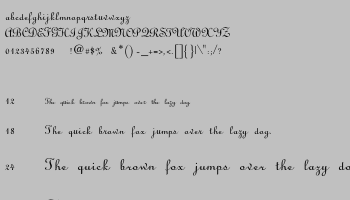 abcdefghijklmnopqrstuvwxyz
ABCDEFGHIJKLMNOPQRSTUVWXYZ
0123456789 !@#$% &*() -_+=>,<.[]{}|\":;/?
12 The quick brown fox jumps over the lazy dog.
18 The quick brown fox jumps over the lazy dog.
24 The quick brown fox jumps over the lazy do